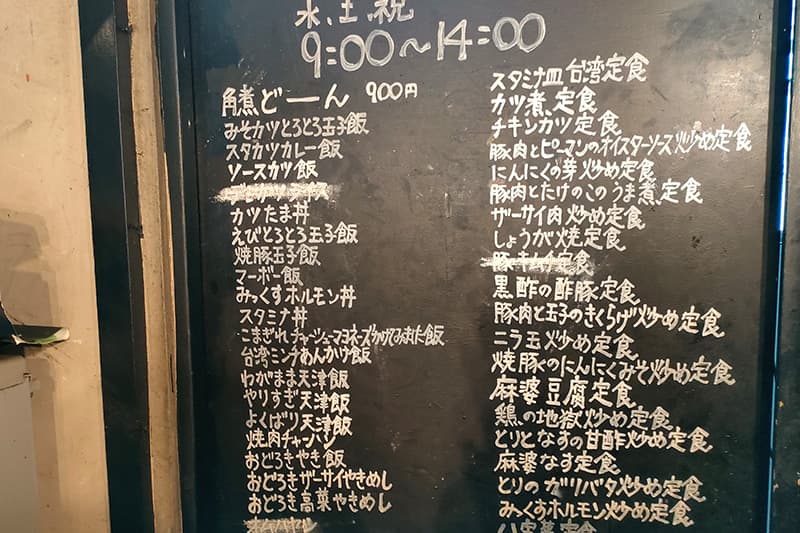 水、土、祝
9:00〜14:00
角煮どーん 900円
みそカツとろとろ玉子飯
スタカツカレー飯
ソースカツ飯
カツたま丼
えびとろとろ玉子飯
焼豚玉子飯
マーボー飯
みっくすホルモン丼
スタミナ丼
こまぎれチャーシューマヨネーズかけてみました飯
台湾ミンチあんかけ飯
わがまま天津飯
やりすぎ天津飯
よくばり天津飯
焼肉チャーハン
おどろきやき飯
おどろきザーサイやきめし
おどろき高菜やきめし
スタミナ皿 台湾定食
カツ煮、定食
チキンカツ定食
豚肉とピーマンのオイスターソース炒め定食
にんにくの芽炒め定食
豚肉とたけのこのうま煮定食
ザーサイ肉炒め定食
しょうが焼定食
豚キムチ定食
黒酢の酢豚定食
豚肉と玉子のきくらげ炒め定食
ニラ玉炒め定食
焼豚のにんにくみそ炒め定食
麻婆豆腐定食
鶏の地獄炒め定食
とりとなすの甘酢炒め定食
麻婆なす定食
とりのガリバタ炒め定食
みっくすホルモン炒め定食
八宝菜定食